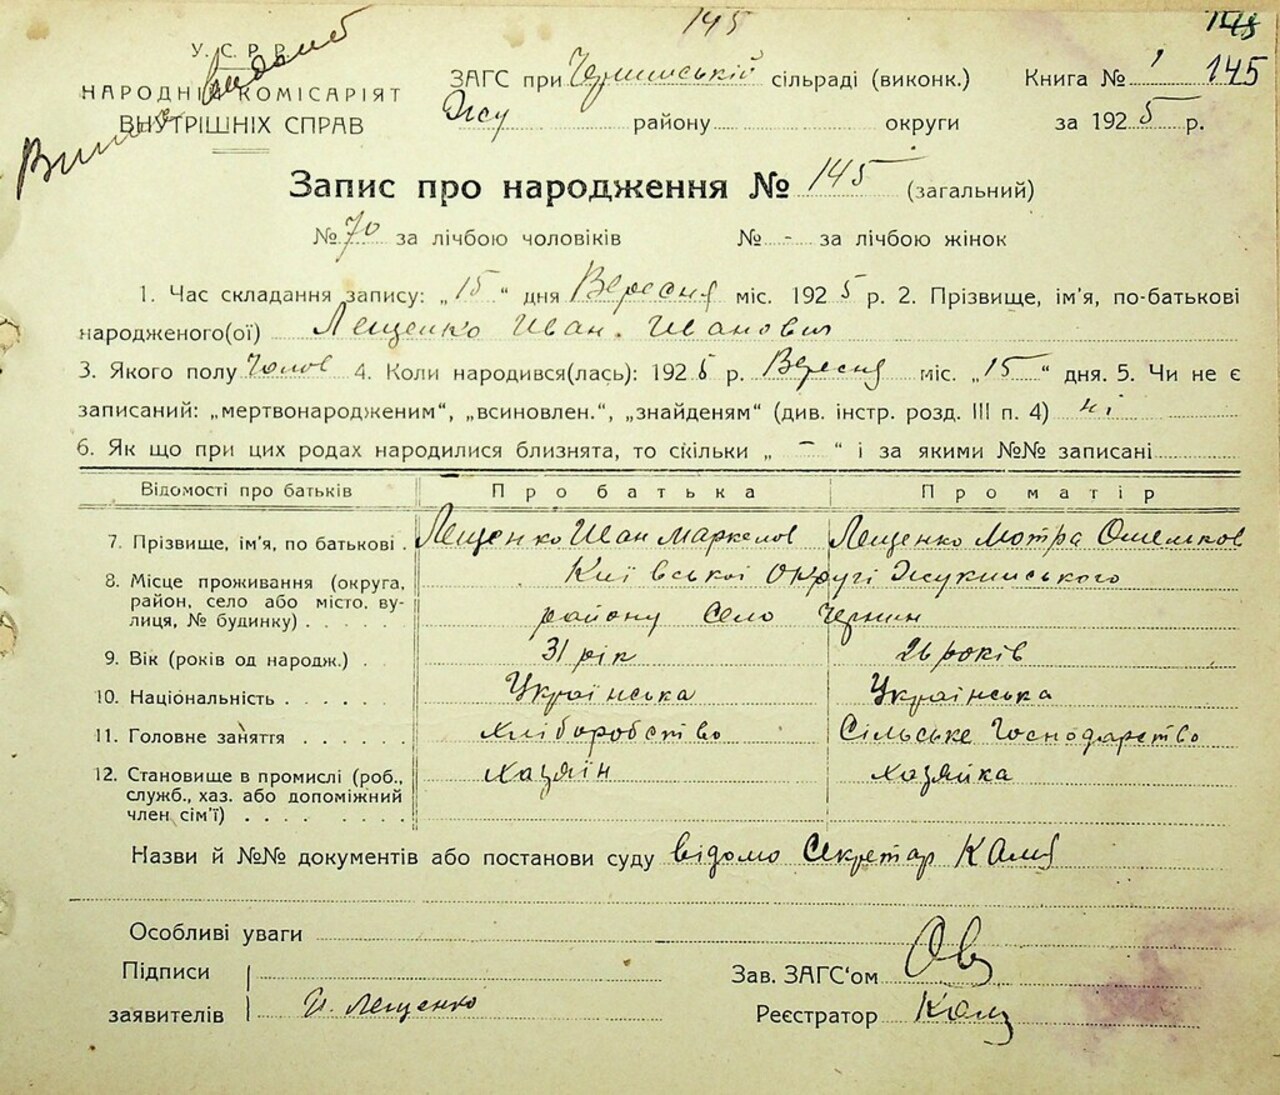 145
145
У.С.Р.Р.
НАРОДНІЙ КОМІСАРІЯТ
ВНУТРІШНІХ СПРАВ
ЗАГС при Чернинській сільраді (виконк.)
району округи
Книга № 1 145
за 1925 р.
Запис про народження № 145 (загальний)
№ 70 за лічбою чоловіків № - за лічбою жінок
1. Час складання запису: „15“ дня Вересня міс. 1925 р. 2. Прізвище, ім'я, по-батькові
народженого(ої) Лещенко Иван Иванович
3. Якого полу Чолов 4. Коли народився(лась): 1925 р. Вересня міс. „15“ дня. 5. Чи не є
записаний: „мертвонародженим“, „всиновлен.“, „знайденям“ (див. інстр. розд. III п. 4) ні
6. Як що при цих родах народилися близнята, то скільки „ — “ і за якими №№ записані
Відомості про батьків Про батька Про матір
7. Прізвище, ім'я, по батькові . Лещенко Иван Маркелов Лещенко Мотра
8. Місце проживання (округа, район, село або місто, вулиця, № будинку) . . . . . Київської Округі Жукинського
району Село Чернин
9. Вік (років од народж.) . 31 рік 26 років
10. Національність . . . . . . Українська Українська
11. Головне заняття . . . . . . хліборобство Сільське Господарство
12. Становище в промислі (роб., служб., хаз. або допоміжний член сім'ї) . . . . . . . . хазяїн хазяйка
Назви й №№ документів або постанови суду відомо Секретар
Особливі уваги
Підписи
заявителів И. Лещенко
Зав. ЗАГС'ом
Реєстратор